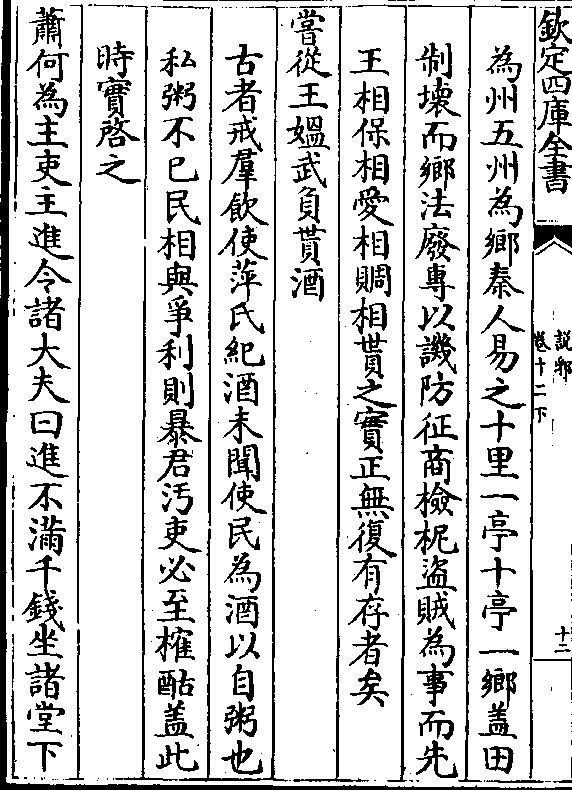 欽定四庫全書
說郛
卷十二下
十二
為州五州為鄉秦人易之十里一亭十亭一鄉盖田
制壞而鄉法廢專以譏防征商檢柅盜賊為事而先
王相保相愛相賙相貰之實正無復有存者矣
嘗從王媼武負貰酒
古者戒羣飲使萍氏紀酒未聞使民為酒以自粥也
私粥不已民相與爭利則暴君汚吏必至榷酤盖此
時實啓之
蕭何為主吏主進令諸大夫曰進不滿千錢坐諸堂下